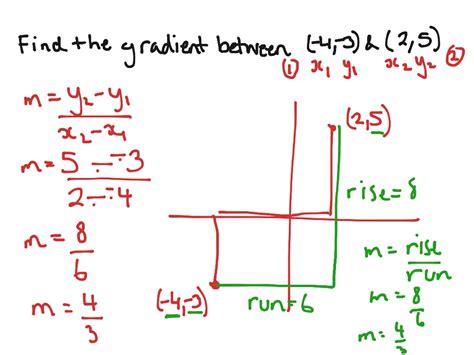 Find the gradient between (-4,-3) & (2,5)
① x₁ y₁ x₂ y₂ ②
m = y₂-y₁
x₂-x₁
m = 5 - -3
2 - -4
m = 8
6
m = 4
3
(2,5)
rise=8
(-4,-3)
run=6
m = rise
run
m = 8
6
m = 4
3